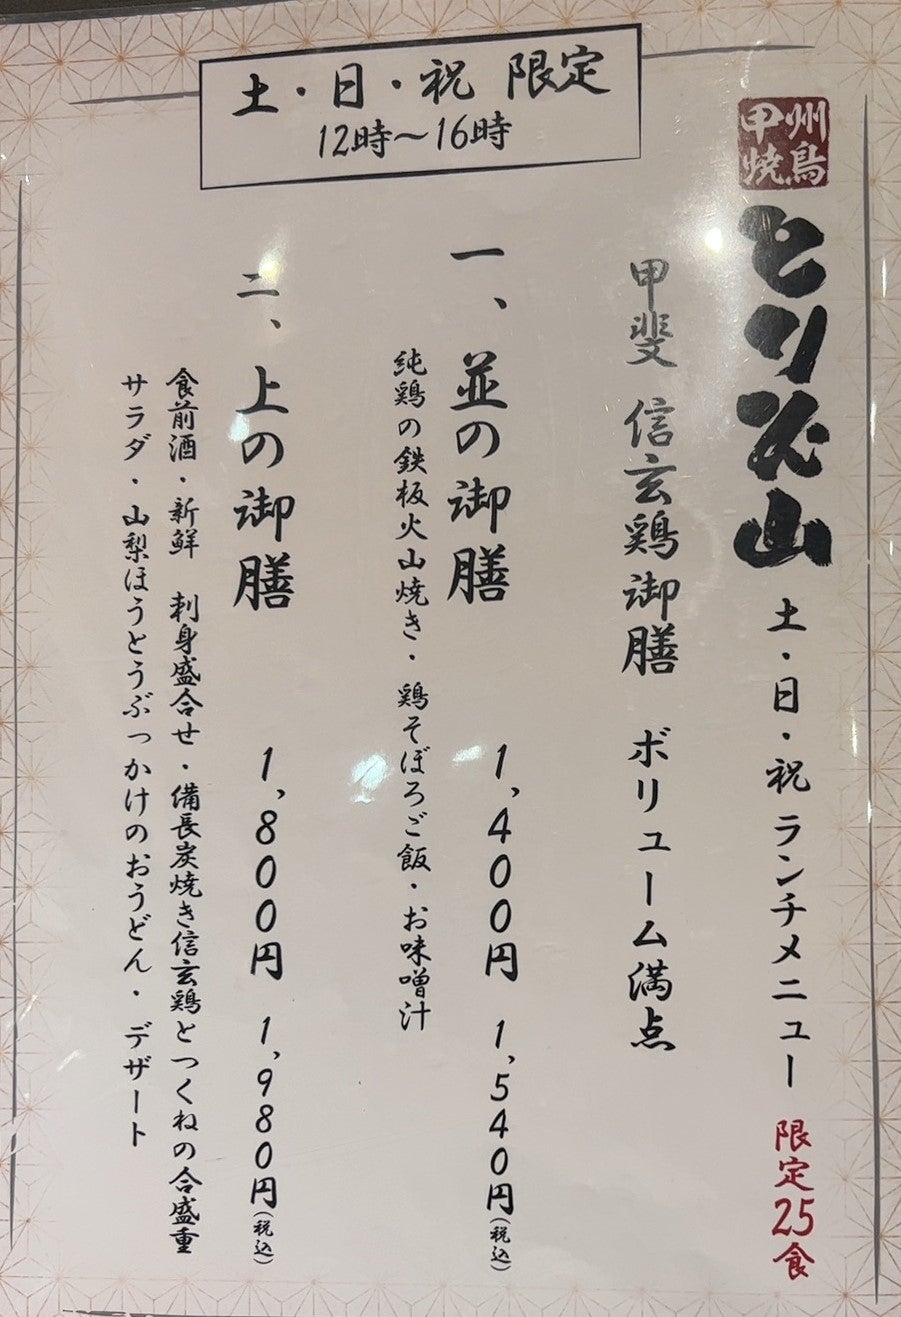 土・日・祝 限定
12時〜16時
甲州
焼鳥
とり火山 土・日・祝 ランチメニュー 限定25食
甲斐 信玄鶏御膳 ボリューム満点
一、並の御膳 1,400円 1,540円(税込)
純鶏の鉄板火山焼き・鶏そぼろご飯・お味噌汁
二、上の御膳 1,800円 1,980円(税込)
食前酒・新鮮 刺身盛合せ・備長炭焼き信玄鶏とつくねの合盛重
サラダ・山梨ほうとうぶっかけのおうどん・デザート